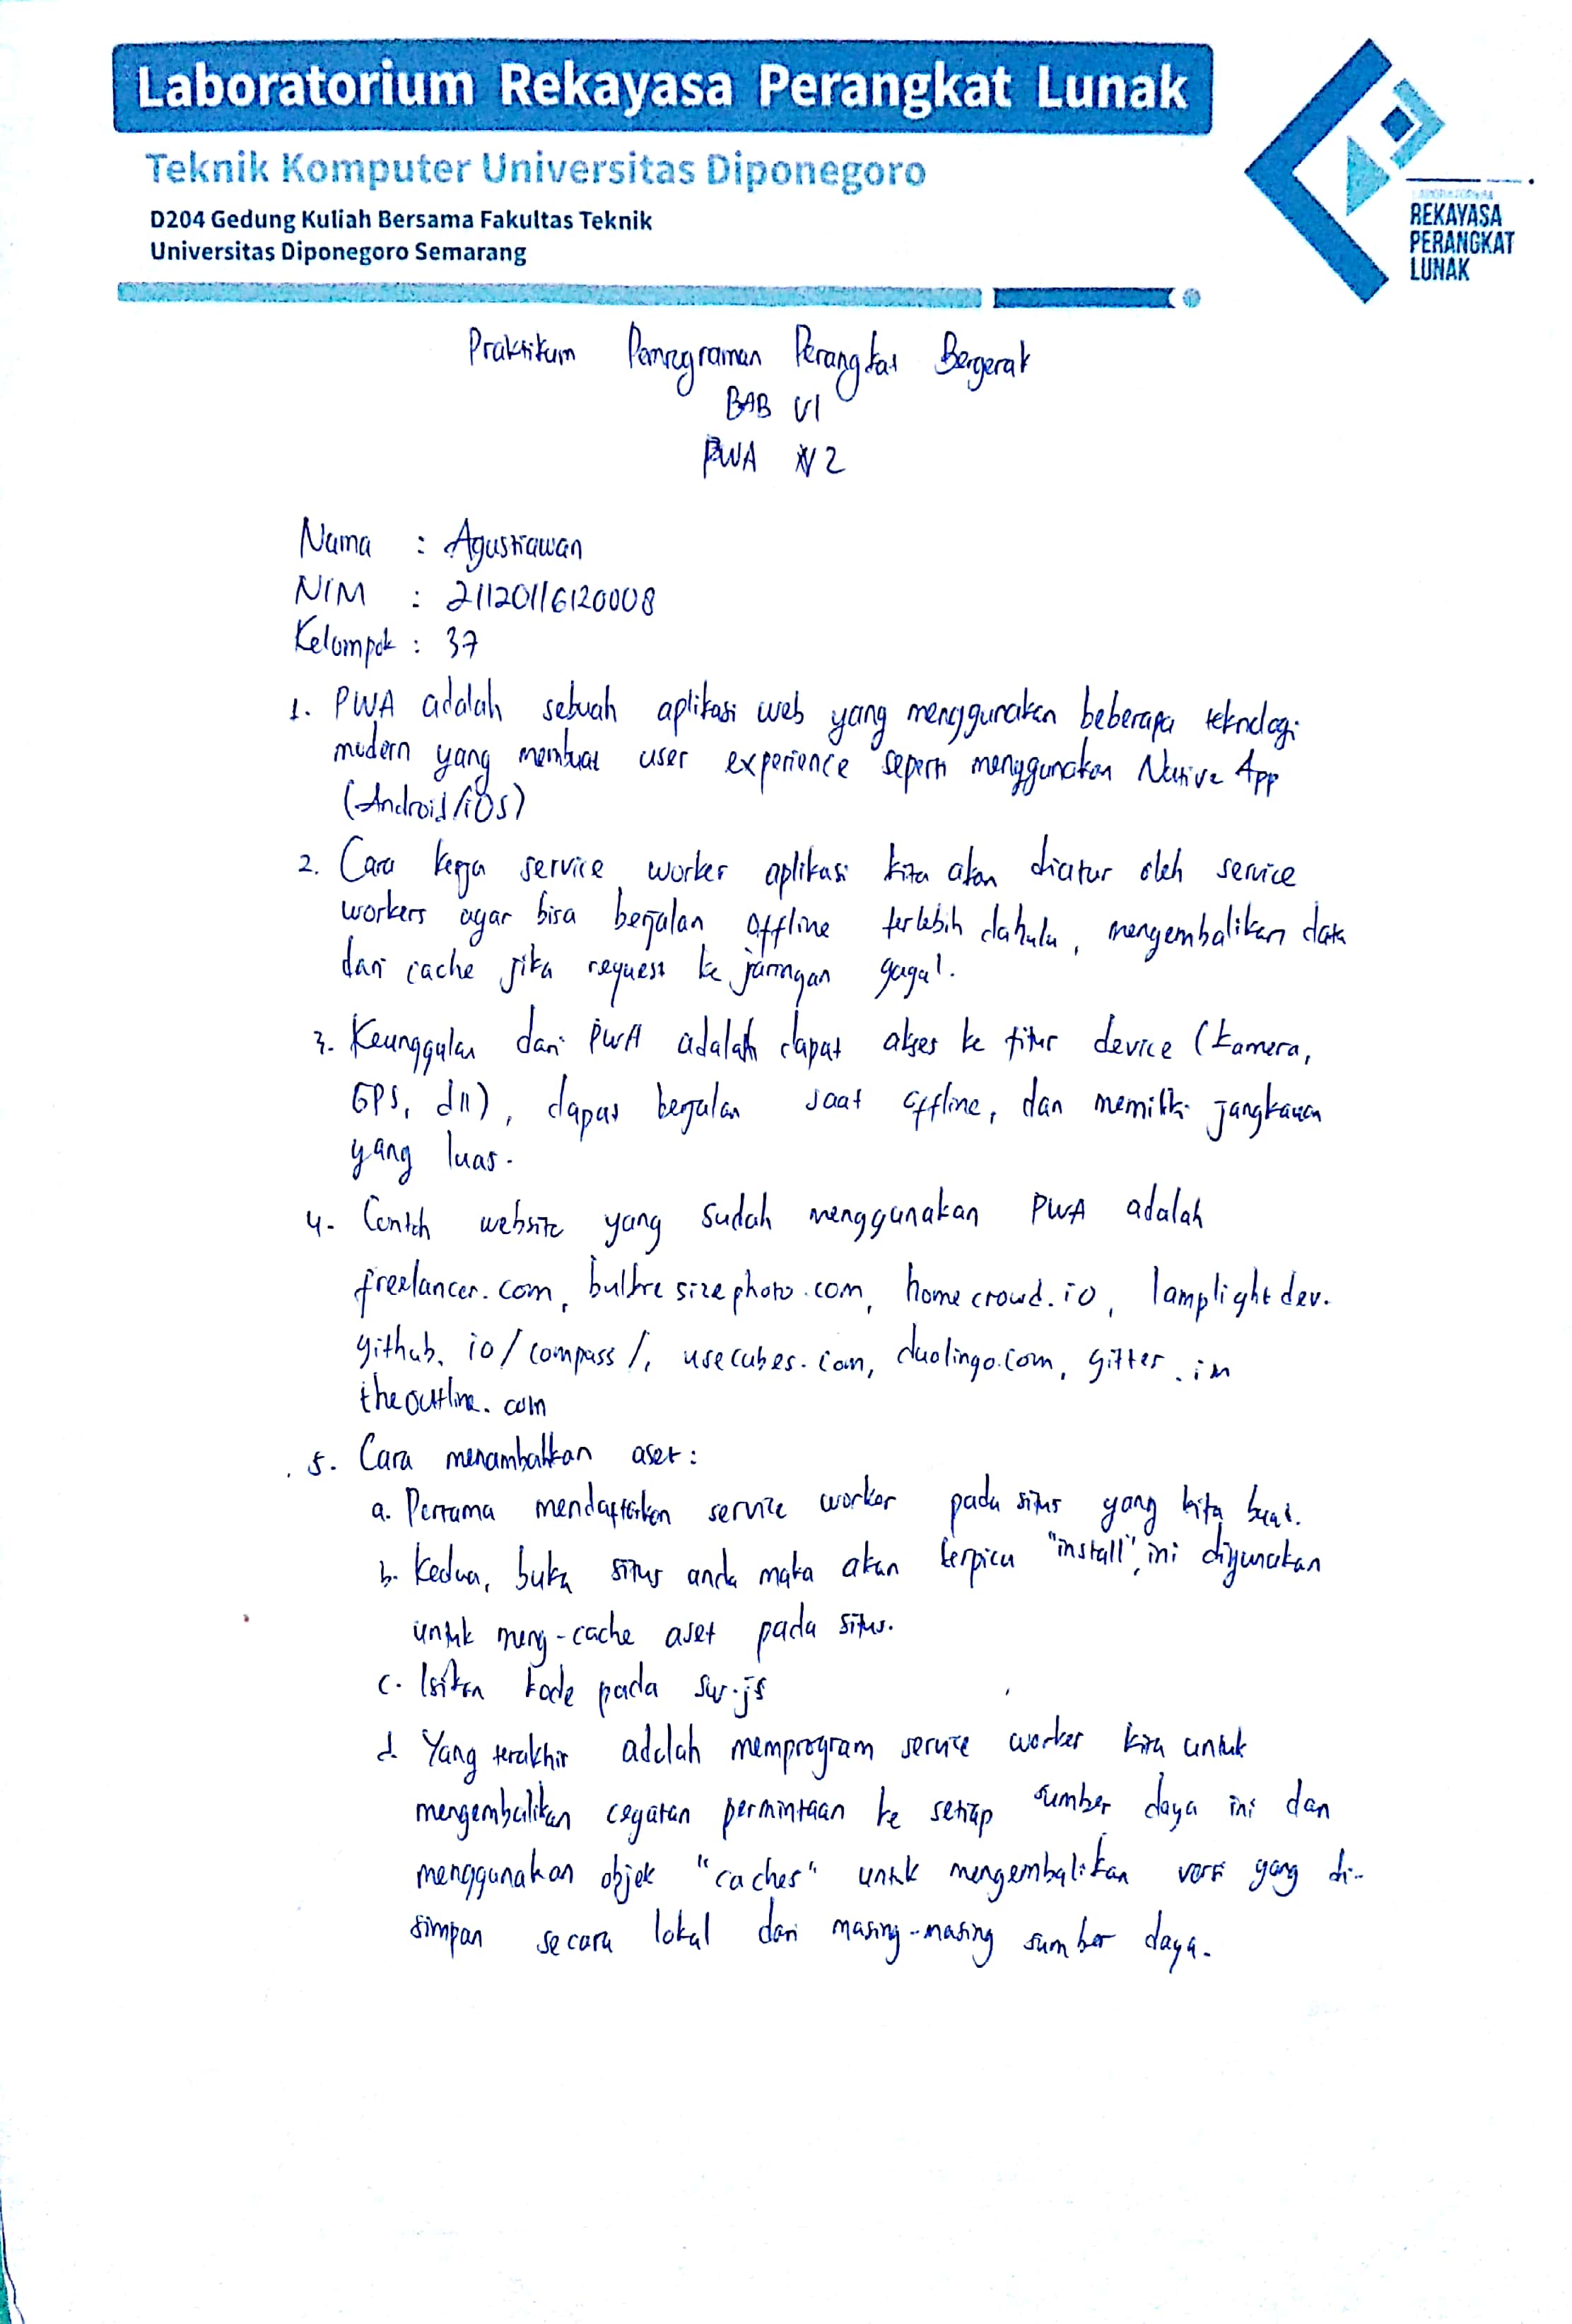 Laboratorium Rekayasa Perangkat Lunak
Teknik Komputer Universitas Diponegoro
D204 Gedung Kuliah Bersama Fakultas Teknik
Universitas Diponegoro Semarang
REKAYASA
PERANGKAT
LUNAK
Praktikum Pemrograman Perangkat Bergerak
BAB VI
PWA 2
Nama : Agustiawan
NIM : 21120116120008
Kelompok : 37
1. PWA adalah sebuah aplikasi web yang menggunakan beberapa teknologi
modern yang membuat user experience seperti menggunakan Native App
(Android/iOS)
2. Cara kerja service worker aplikasi kita akan diatur oleh service
workers agar bisa berjalan offline terlebih dahulu, mengembalikan data
dari cache jika request ke jaringan gagal.
3. Keunggulan dari PWA adalah dapat akses ke fitur device (kamera,
GPS, dll), dapat berjalan saat offline, dan memiliki jangkauan
yang luas.
4. Contoh website yang sudah menggunakan PWA adalah
freelancer.com, sizephoto.com, homecrowd.io, lamplightdev.
github.io/compass/, usecubes.com, duolingo.com, gitter.im
theoutline.com
5. Cara menambahkan aset:
a. Pertama mendaftarkan service worker pada situs yang kita buat.
b. Kedua, buka situs anda maka akan terpicu "install", ini digunakan
untuk meng-cache aset pada situs.
c. Isikan kode pada sw.js
d. Yang terakhir adalah memprogram service worker kita untuk
mengembalikan cegatan permintaan ke setiap sumber daya ini dan
menggunakan objek "caches" untuk mengembalikan versi yang di-
simpan secara lokal dari masing-masing sumber daya.